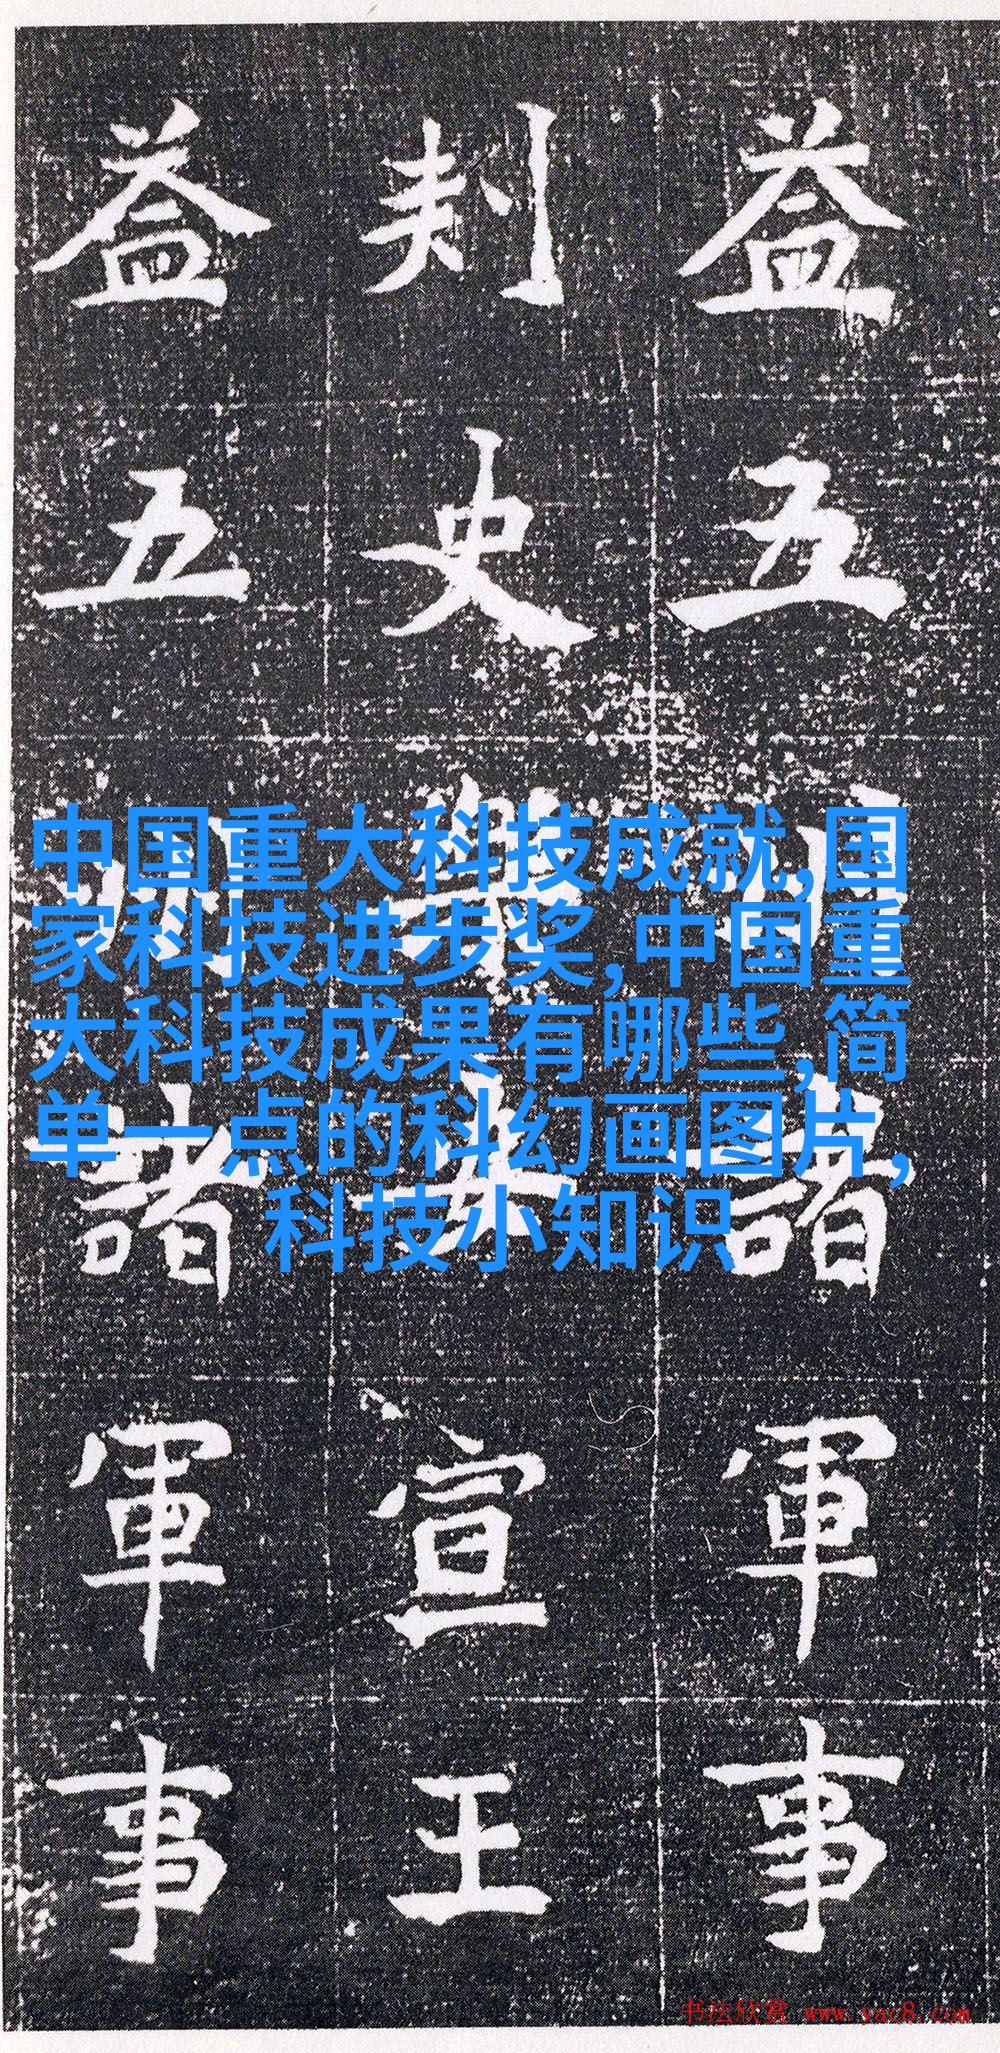 益五諸軍事
刾史宣王
益五諸軍事
中国重大科技成就,国
家科技进步奖,中国重
大科技成果有哪些,简
单一点的科幻画图片,
科技小知识
书法欣赏 www.yac8.com